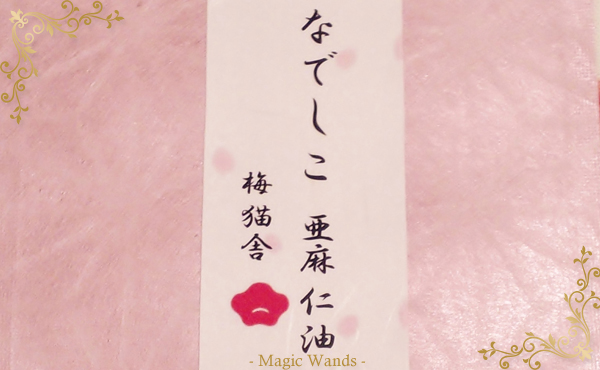 なでしこ 亜麻仁油
梅猫舎
- Magic Wands -